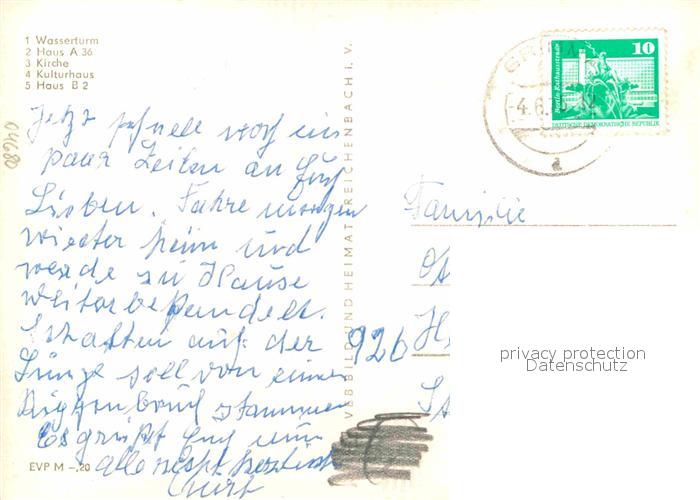 1 Wasserturm
2 Haus A 36
3 Kirche
4 Kulturhaus
5 Haus B 2
Jetzt schnell noch ein
paar Zeilen an Euch
Lieben. Fahre morgen
wieder heim und
werde zu Hause
weiterbehandelt.
Schatten auf der
Lunge soll von einem
Rippenbruch stammen
Es grüßt Euch nun
alle recht herzlich
Kurt
EVP M –,20
04680
VEB BILD UND HEIMAT REICHENBACH I. V.
926
10
Berlin, Rathausstraße
DEUTSCHE DEMOKRATISCHE REPUBLIK
a
Familie
privacy protection
Datenschutz